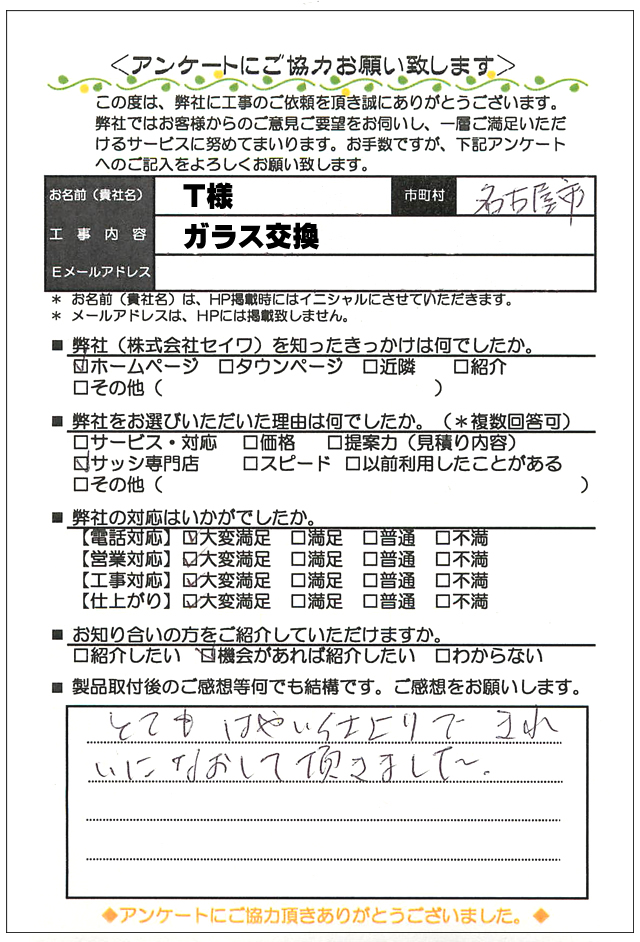 ＜アンケートにご協力お願い致します＞
この度は、弊社に工事のご依頼を頂き誠にありがとうございます。
弊社ではお客様からのご意見ご要望をお伺いし、一層ご満足いただ
けるサービスに努めてまいります。お手数ですが、下記アンケート
へのご記入をよろしくお願い致します。
お名前（貴社名） T様 市町村 名古屋市
工事内容 ガラス交換
Eメールアドレス
＊ お名前（貴社名）は、HP掲載時にはイニシャルにさせていただきます。
＊ メールアドレスは、HPには掲載致しません。
■ 弊社（株式会社セイワ）を知ったきっかけは何でしたか。
☑ホームページ □タウンページ □近隣 □紹介
□その他（ ）
■ 弊社をお選びいただいた理由は何でしたか。（＊複数回答可）
□サービス・対応 □価格 □提案力（見積り内容）
☑サッシ専門店 □スピード □以前利用したことがある
□その他（ ）
■ 弊社の対応はいかがでしたか。
【電話対応】☑大変満足 □満足 □普通 □不満
【営業対応】☑大変満足 □満足 □普通 □不満
【工事対応】☑大変満足 □満足 □普通 □不満
【仕上がり】☑大変満足 □満足 □普通 □不満
■ お知り合いの方をご紹介していただけますか。
□紹介したい ☑機会があれば紹介したい □わからない
■ 製品取付後のご感想等何でも結構です。ご感想をお願いします。
とてもはやい仕上りで きれ
いになおして頂きました〜。
◆アンケートにご協力頂きありがとうございました。◆